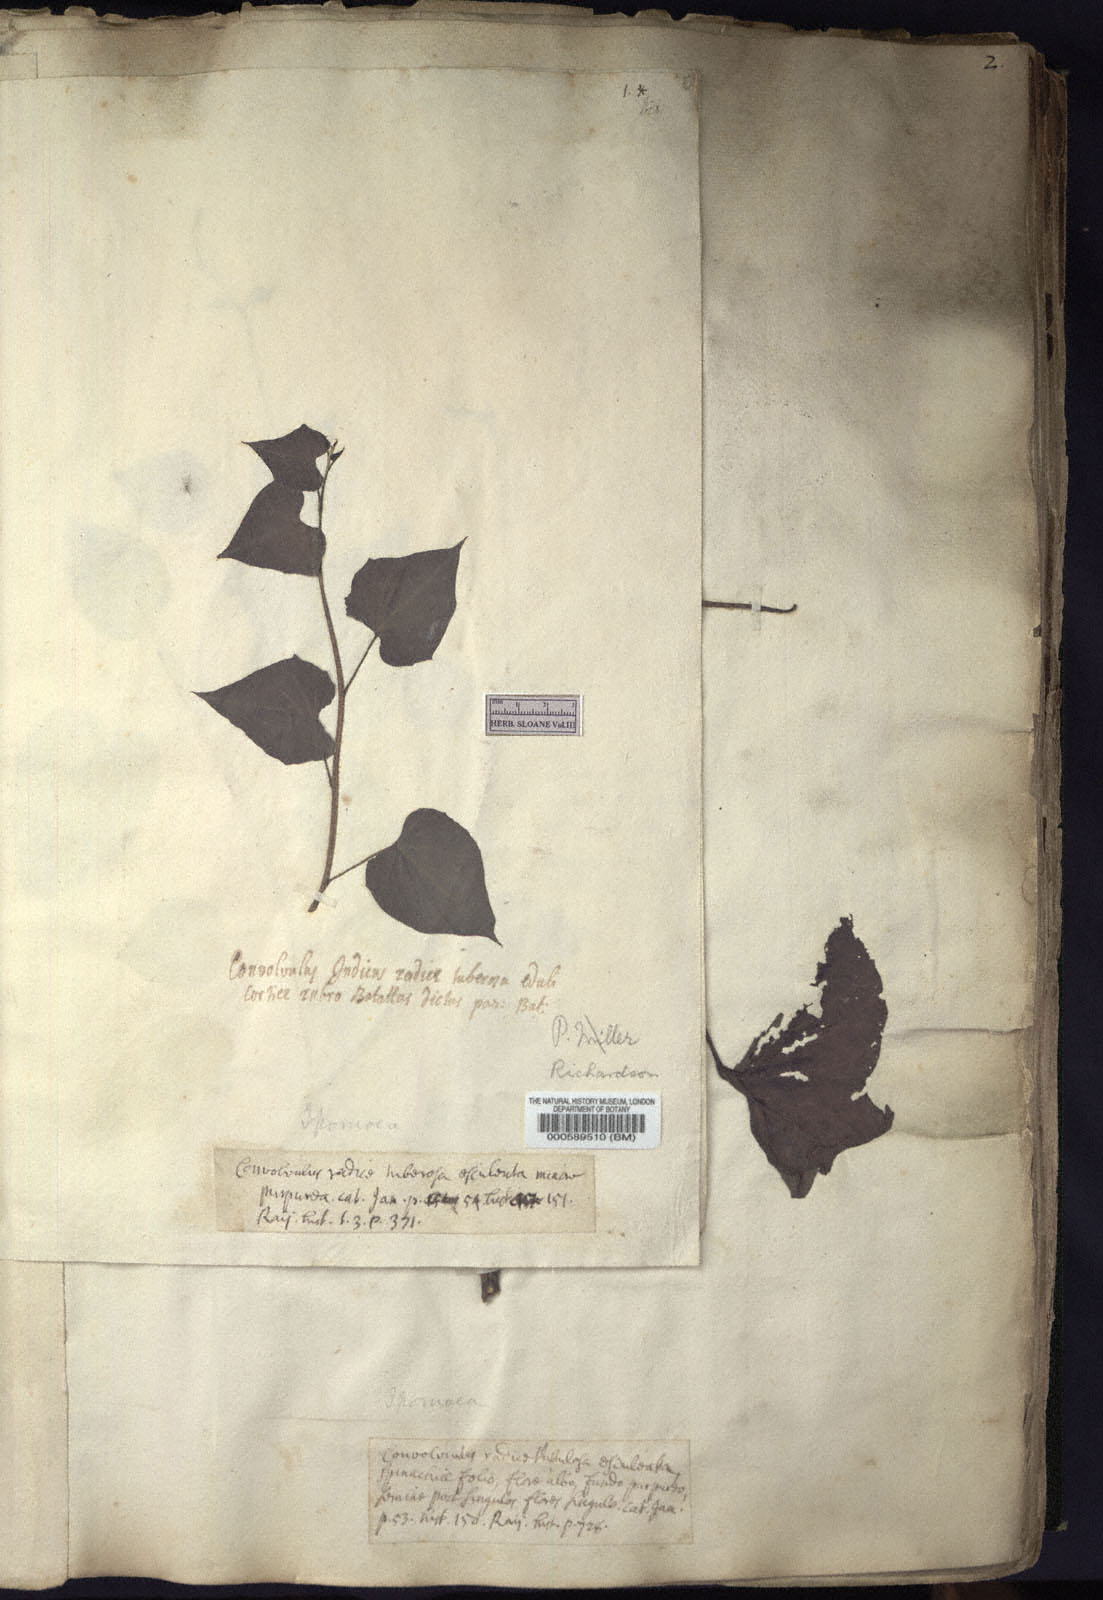 2.
1. *
HERB. SLOANE Vol.III
Convolvulus Indicus radice tuberosa eduli
cortice rubro Batattas dictus par: Bat:
P. Miller
Richardson
THE NATURAL HISTORY MUSEUM, LONDON
DEPARTMENT OF BOTANY
000589510 (BM)
Ipomoea
Convolvulus radice tuberosa esculenta minor
purpurea. cat. Jam. p. 54. hist. 151.
Raij. hist. t. 3. p. 371.
Ipomoea
Convolvulus radice tuberosa esculenta,
spinachiae folio, flore albo, fundo purpureo,
semine post singulos flores singulo. Cat. Jam.
p. 53. hist. 150. Raij. hist. p. 728.